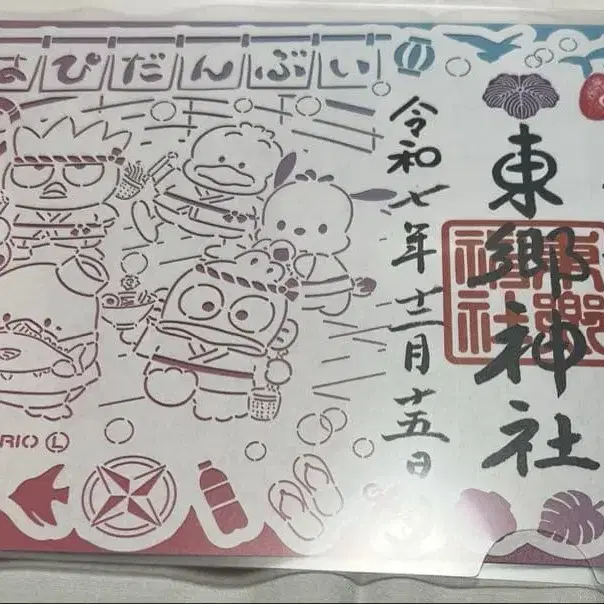 ぴだんぶい
東郷神社
令和七年十二月十五日
東郷
神社
RIO Ⓛ